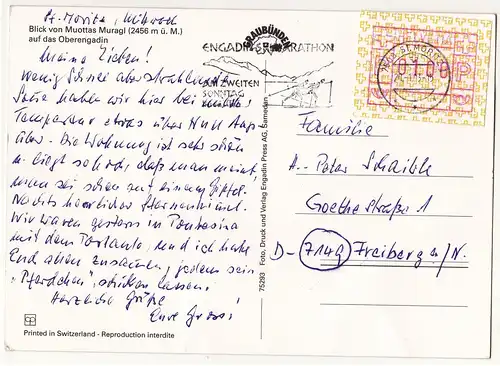 St. Moritz, Mittwoch
Blick von Muottas Muragl (2456 m ü. M.)
auf das Oberengadin
Meine Lieben!
Wenig Schnee aber strahlende
Sonne haben wir hier bei
Temperatur etwas über Null Tags
über. Die Wohnung ist sehr schön
u. liegt so hoch, daß man meint
man sei schon auf einem Gipfel.
Nachts herrlicher Sternenhimmel.
Wir waren gestern in Pontresina
mit dem Postauto, und ich habe
Euch allen zusammen, jedem sein
"Pferdchen", schicken lassen.
Herzliche Grüße
Eure
Printed in Switzerland - Reproduction interdite
75293 Foto, Druck und Verlag Engadin Press AG, Samedan
GRAUBÜNDEN
ENGADIN SKIMARATHON
AM ZWEITEN
SONNTAG
7500 ST. MORITZ
0100
Familie
Peter
Goethestraße 1
D- 7149 Freiberg a/N.